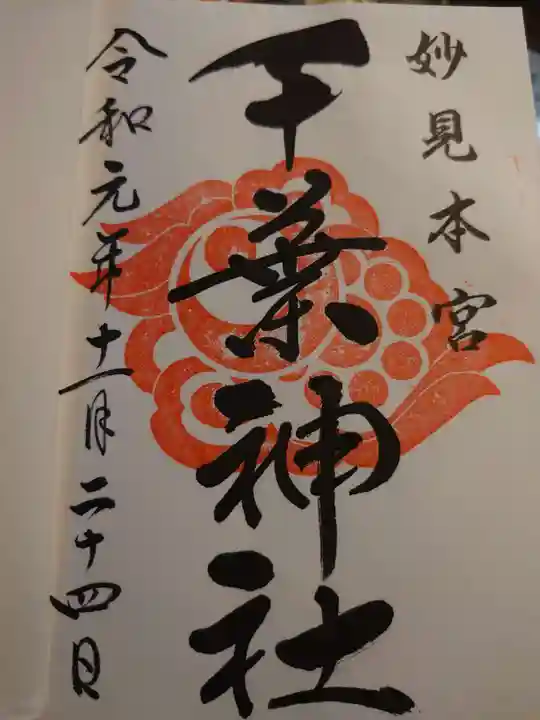 妙見本宮
千葉神社
令和元年十一月二十四日